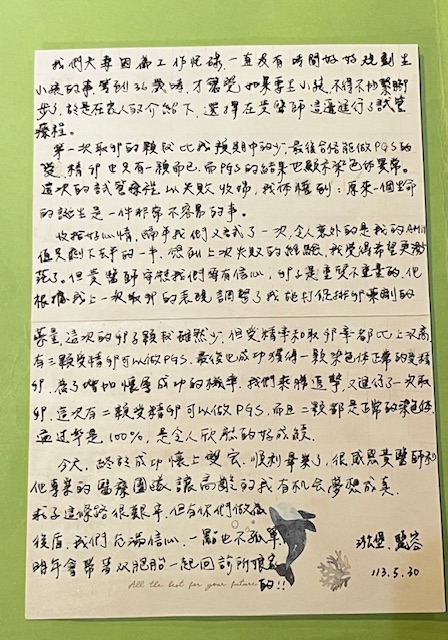 我們夫妻因為工作忙碌，一直沒有時間好好規劃生
小孩的事，等到36歲時，才驚覺如果要生小孩，不得不加緊腳
步了，於是在家人的介紹下，選擇在黃醫師這邊進行了試管
療程。
第一次取卵的顆數比我預期中的少，最後合格能做PGS的
受精卵也只有一顆而已，而PGS的結果也顯示染色体異常。
這次的試管療程以失敗收場，我体懂到：原來一個生命
的誕生是一件非常不容易的事。
收拾好心情，歸年我們又試了一次，令人意外的是我的AMH
值只剩下去年的一半，想到上次失敗的經驗，我覺得希望更渺
茫了。但黃醫師安慰我們要有信心，卵子是重質不重量的，他
根據我上一次取卵的表現調整了我施打促排卵藥劑的
容量，這次的卵子顆數雖然少，但受精率和取卵率都比上次高，
有三顆受精卵可以做PGS，最後也成功獲得一顆染色体正常的受精
卵，為了增加懷孕成功的機率，我們乘勝追擊，又進行了一次取
卵，這次有二顆受精卵可以做PGS，而且二顆都是正常的染色体，
通過率是100%，是令人欣慰的好成績。
今天，終於成功懷上雙宝，順利畢業了，很感恩黃醫師和
他專業的醫療團隊，讓高齡的我有机会夢想成真，
求子這條路很艱辛，但有你們做後
後盾，我們充滿信心，一點也不孤單，
明年會帶著双胞胎一起回診所探望
的!!
All the best for your future
113.5.30